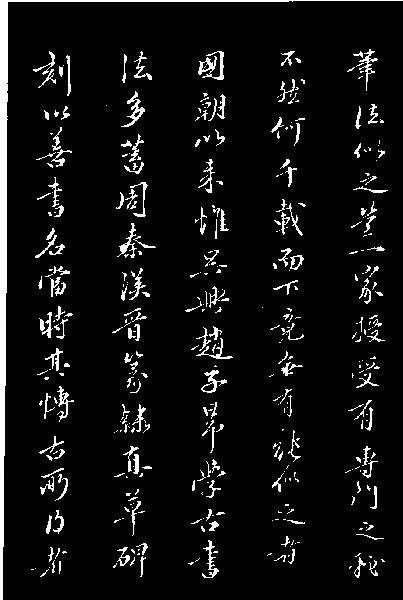 筆法似之蓋一家授受有專門之秘
不然何千載而下竟無有能似之者
國朝以來惟吳興趙子昂學古書
法多蓄周秦漢晉篆隸真草碑
刻以善書名當時其博古所得者